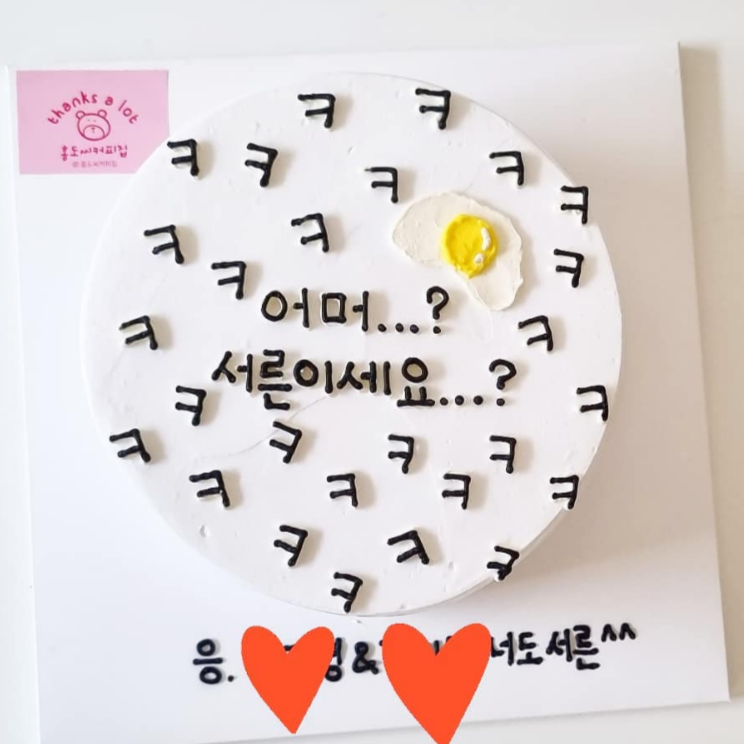 thanks a lot
홍도씨커피집
@홍도씨커피집
ㅋ ㅋ
ㅋ ㅋ ㅋ ㅋ ㅋ
ㅋ ㅋ ㅋ
ㅋ ㅋ
어머...?
ㅋ ㅋ
서른이세요...?
ㅋ ㅋ
ㅋ ㅋ ㅋ ㅋ
ㅋ ㅋ ㅋ ㅋ
ㅋ ㅋ ㅋ
ㅋ
응. & 너도 서른^^